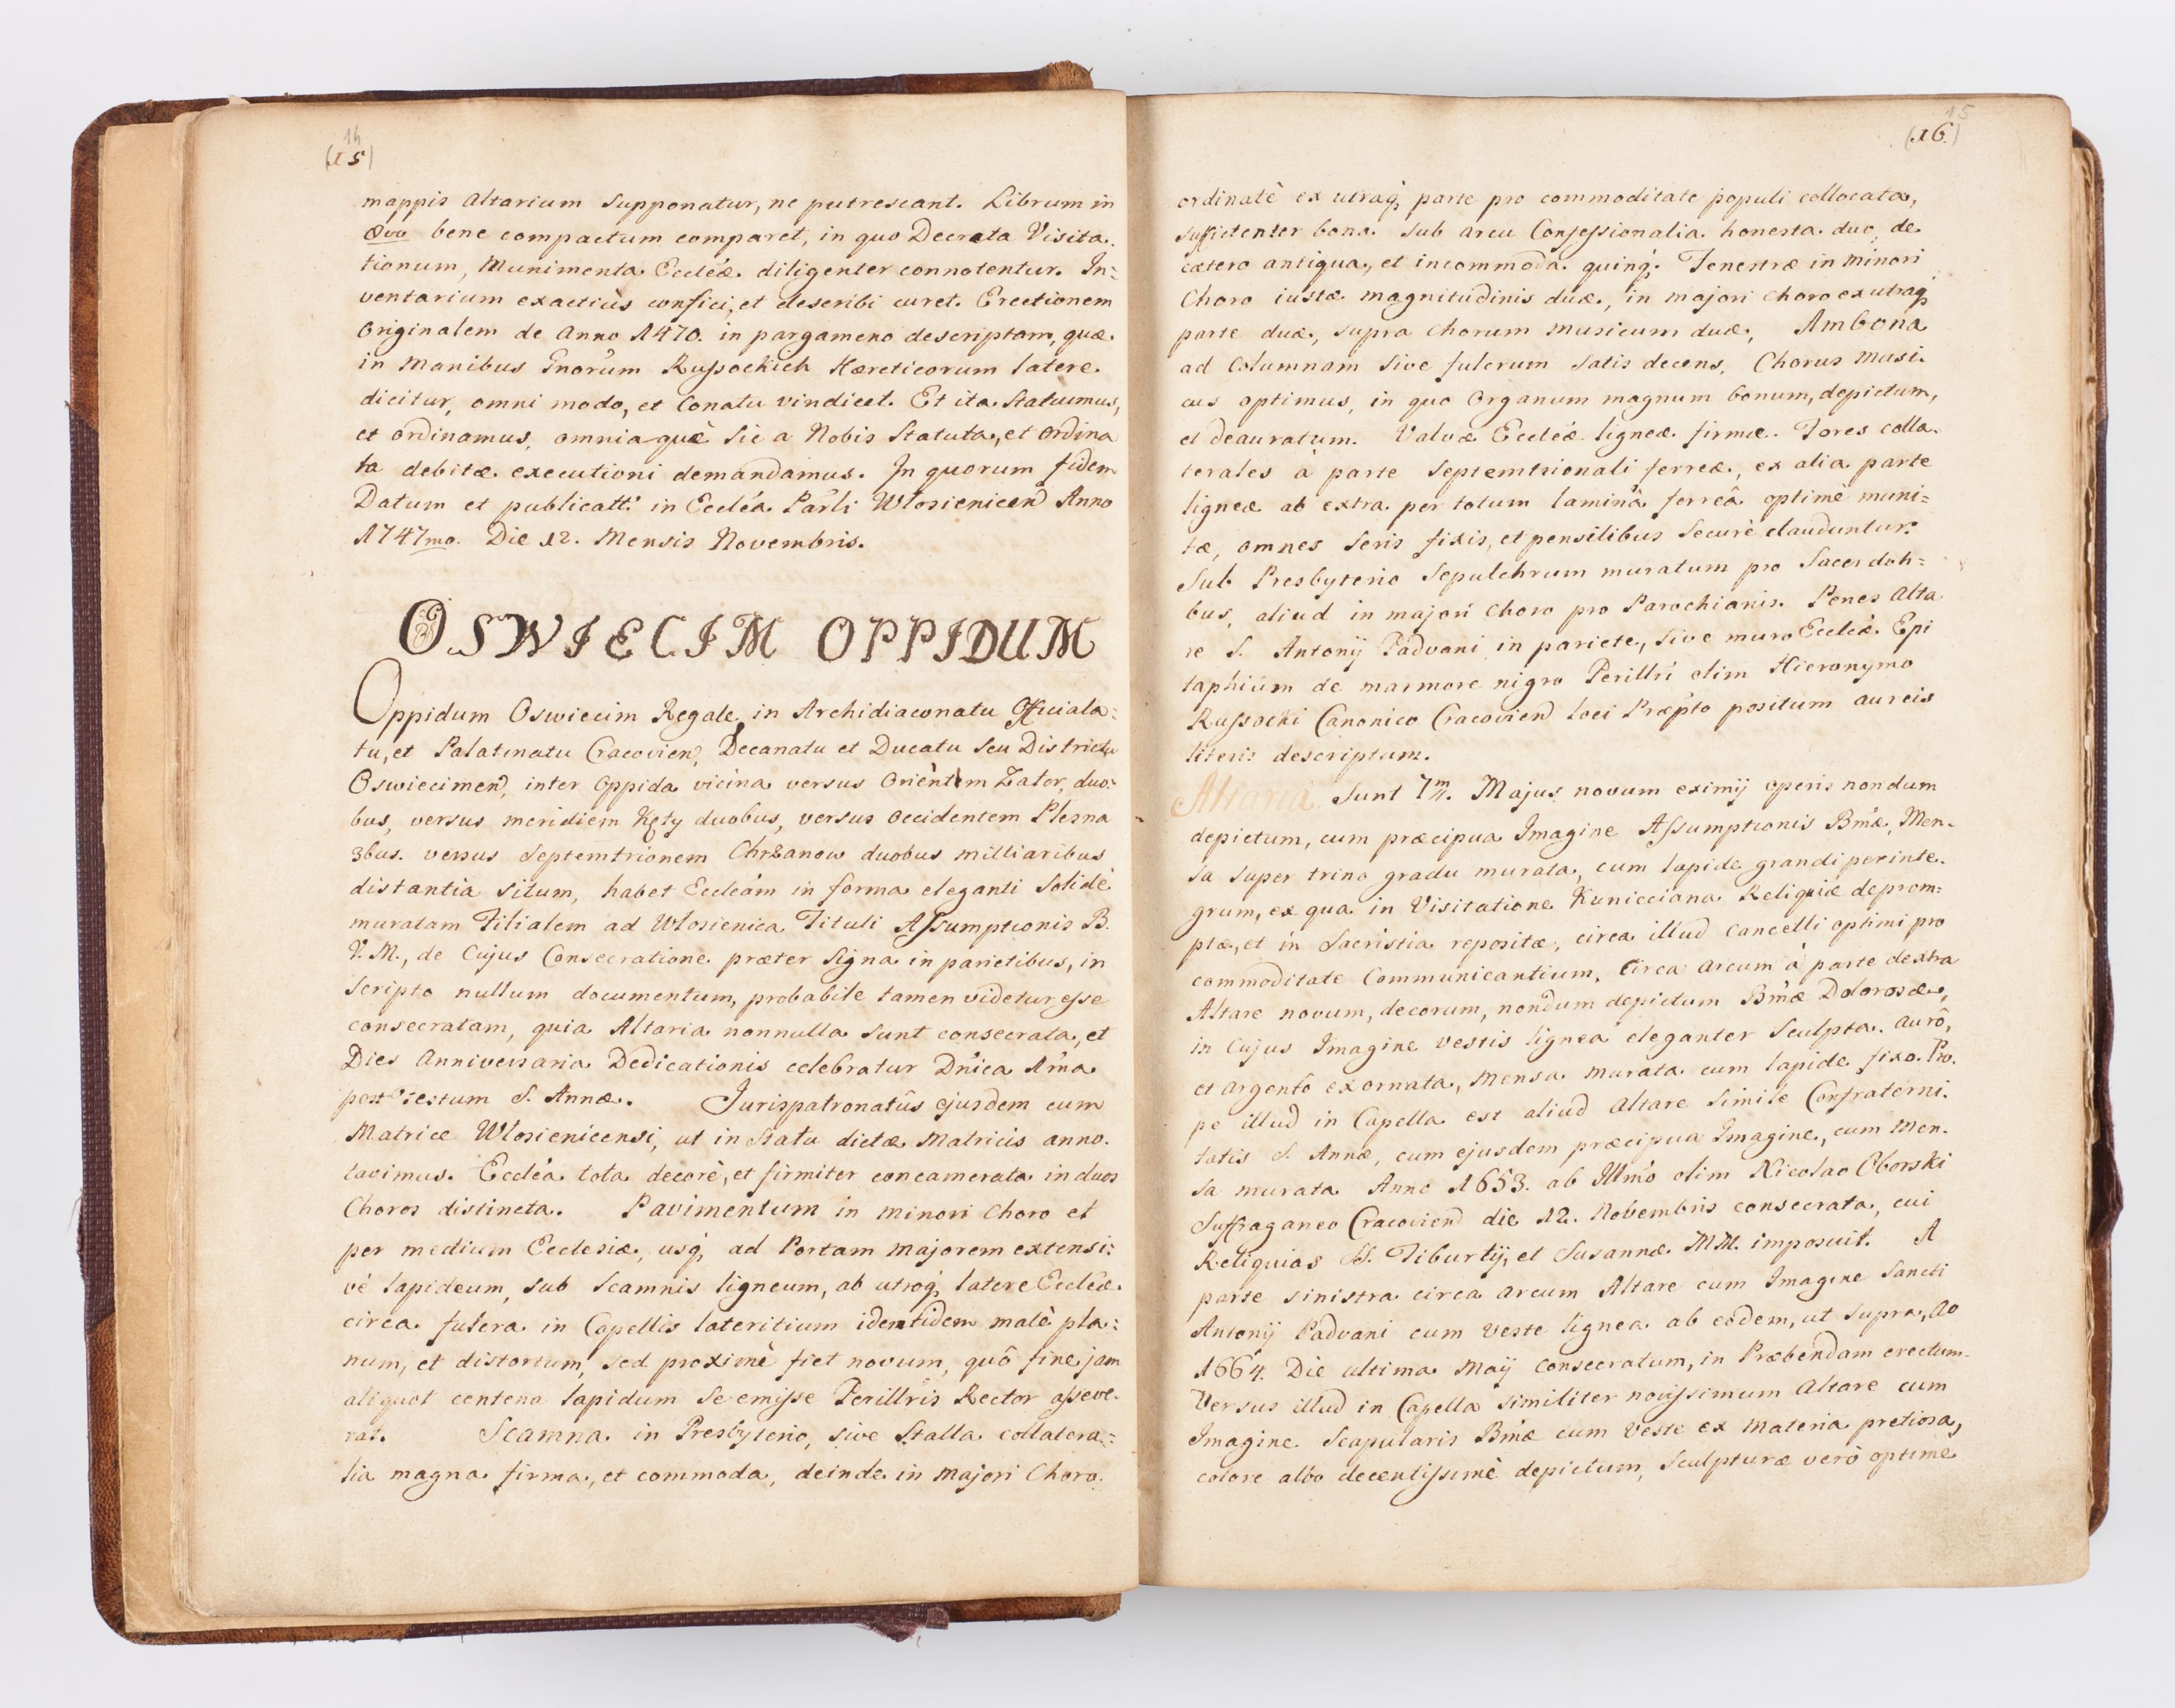 14
(15)
mappis Altarium supponatur, ne putrescant. Librum in
8vo bene compactum comparet, in quo Decreta Visita.
tionum, Munimenta Eccleæ diligenter connotentur. In=
ventarium exactiùs confici, et describi curet. Erectionem
Originalem de Anno 1470. in pargameno descriptam, quæ
in Manibus Gnorum Russockich Hæreticorum latere
dicitur, omni modo, et Conatu vindicet. Et ita Statuimus,
et ordinamus, omniaquè sic a Nobis Statuta, et ordina
ta debitæ executioni demandamus. In quorum fidem
Datum et publicatt: in Ecclea Parli Wlosienicen Anno
1747mo. Die 12. Mensis Novembris.
OSWIECIM OPPIDUM
Oppidum Oswiecim Regale in Archidiaconatu Officiala=
tu, et Palatinatu Cracovien, Decanatu et Ducatu seu Districtu
Oswiecimen, inter Oppida vicina versus Orientem Zator, duo=
bus, versus meridiem Kęty duobus, versus occidentem Plesna
3bus. versus Septemtrionem Chrzanow duobus milliaribus
distantia situm, habet Eccleam in forma eleganti Solidè
muratam Filialem ad Wlosienica Tituli Assumptionis B.
V. M., de Cujus Consecratione præter Signa in parietibus, in
Scripto nullum documentum, probabile tamen videtur esse
consecratam, quia Altaria nonnulla sunt consecrata, et
Dies Anniversaria Dedicationis celebratur Dnica 1ma
post Festum S. Annæ. Jurispatronatûs ejusdem cum
Matrice Wlosienicensi, ut in Statu dictæ Matricis anno.
tavimus. Ecclea tota decorè, et firmiter concamerata in duos
Choros distincta. Pavimentum in minori Choro et
per medium Ecclesiæ, usq, ad Portam majorem extensi=
vè lapideum, sub Scamnis ligneum, ab utroq, latere Eccleæ
circa fulera in Capellis lateritium identidem malè pla=
num, et distortum, sed proximè fiet novum, quô fine jam
aliquot centena lapidum Se emisse Perillris Rector asseve.
rat. Scamna in Presbyterio, sive Stalla collatera=
lia magna firma, et commoda, deinde in majori Choro
15
(16)
ordinatè ex utraq, parte pro commoditate populi collocata,
sufficienter bona. Sub arcu Confessionalia honesta duo, de
cætero antiqua, et incommoda quinq,. Fenestræ in minori
Choro iustæ magnitudinis duæ, in majori choro ex utraq,
parte duæ, supra Chorum musicum duæ, Ambona
ad Columnam sive fulcrum satis decens, Chorus Musi.
cus optimus, in quo Organum magnum bonum, depictum,
et deauratum. Valvæ Eccleæ ligneæ firmæ. Fores colla.
terales à parte Septemtrionali ferreæ, ex alia parte
ligneæ ab extra per totum laminâ ferreâ optimè muni=
tæ, omnes seris fixis, et pensilibus Securè clauduntur.
Sub Presbyterio Sepulchrum muratum pro Sacerdoti=
bus, aliud in majori Choro pro Parochianis. Penes Alta
re S. Antonÿ Padvani in pariete, sive muro Eccleæ Epi
taphium de marmore nigro Perillri olim Hieronymo
Russocki Canonico Cracovien loci Præpto positum aureis
literis descriptum.
Altaria Sunt 7m. Majus novum eximÿ operis nondum
depictum, cum præcipua Imagine Assumptionis Bmæ, Men.
sa super trino gradu murata, cum lapide grandi per inte.
grum, ex qua in Visitatione Kunicciana Reliquiæ deprom=
ptæ, et in Sacristia repositæ, circa illud Cancelli optimi pro
commoditate Communicantium. Circa Arcum à parte dextra
Altare novum, decorum, nondum depictum Bmæ Dolorosæ,
in Cujus Imagine vestis lignea eleganter Sculpta auro,
et argento exornata, Mensa murata cum lapide fixo. Pro.
pe illud in Capella est aliud Altare simile Confraterni.
tatis S. Annæ, cum ejusdem præcipua Imagine, cum Men.
sa murata Anno 1653. ab Illmo olim Nicolao Oborski
Suffraganeo Cracovien die 12. Novembris consecrata, cui
Reliquias SS. Tiburtÿ, et Susannæ MM. imposuit. A
parte sinistra circa arcum Altare cum Imagine Sancti
Antonÿ Padvani cum veste lignea ab eodem, ut supra, Ao
1664. Die ultima Maÿ consecratum, in Præbendam erectum.
Versus illud in Capella similiter novissimum Altare cum
Imagine Scapularis Bmæ cum Veste ex Materia pretiosa,
colore albo decentissimè depictum, Sculpturæ verò optimè